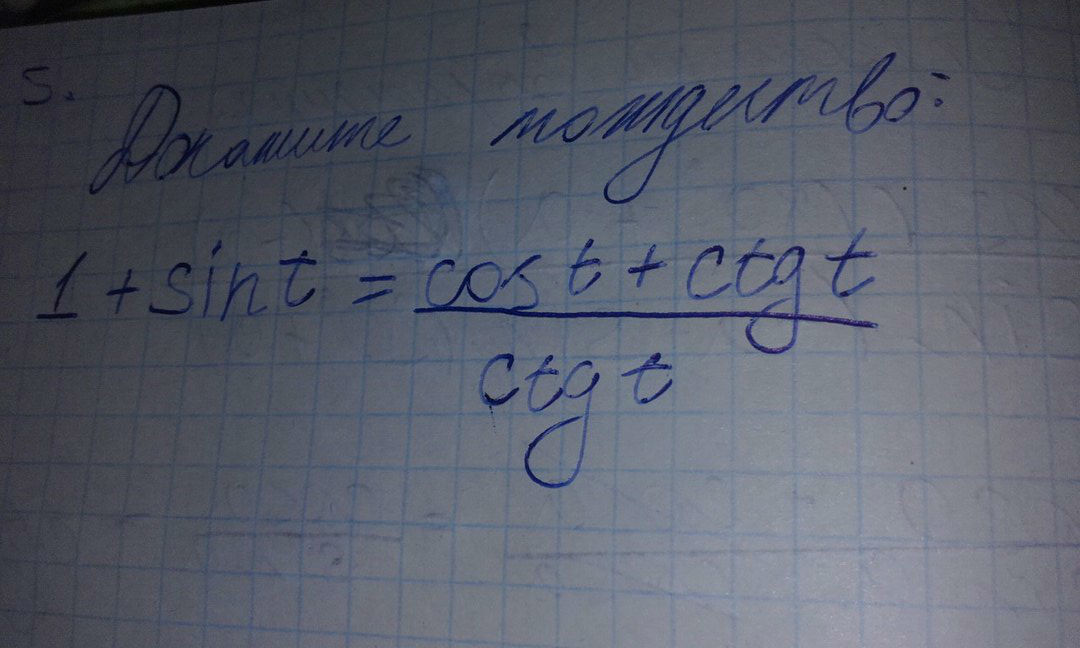 5.
Докажите тождество:
1 + sin t = cos t + ctg t
ctg t